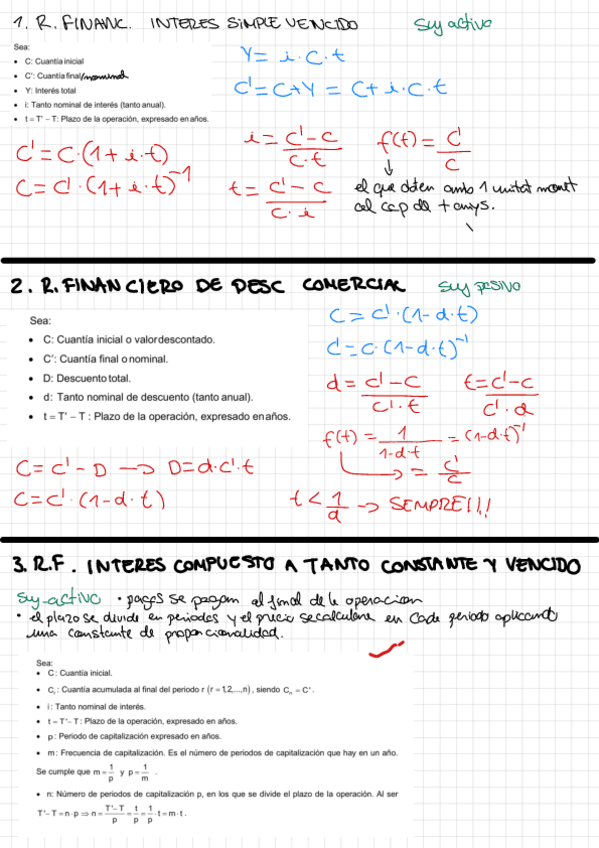 1. R. FINANC. INTERES SIMPLE VENCIDO suj activo
Sea:
• C: Cuantía inicial
• C': Cuantía final/nominal
• Y: Interés total
• i: Tanto nominal de interés (tanto anual).
• t = T' – T: Plazo de la operación, expresado en años.
Y = i · C · t
C' = C + Y = C + i · C · t
C' = C · (1 + i · t)
C = C' · (1 + i · t)^-1
i = (C' - C) / (C · t)
t = (C' - C) / (C · i)
f(t) = C' / C
↓
el que obtén amb 1 unitat monet
al cap de t anys.
2. R. FINANCIERO DE DESC COMERCIAL suj pasivo
Sea:
• C: Cuantía inicial o valor descontado.
• C': Cuantía final o nominal.
• D: Descuento total.
• d: Tanto nominal de descuento (tanto anual).
• t = T' – T : Plazo de la operación, expresado en años.
C = C' · (1 - d · t)
C' = C · (1 - d · t)^-1
d = (C' - C) / (C' · t)
t = (C' - C) / (C' · d)
f(t) = 1 / (1 - d · t) = (1 - d · t)^-1
→ = C' / C
C = C' - D → D = d · C' · t
C = C' · (1 - d · t)
t < 1/d → SEMPRE!!!
3. R.F. INTERES COMPUESTO A TANTO CONSTANTE Y VENCIDO
suj activo • pagos se pagan al final de la operacion
• el plazo se divide en periodos y el precio se calculara en cada periodo aplicando
una constante de proporcionalidad.
Sea:
• C : Cuantía inicial.
• Cr : Cuantía acumulada al final del periodo r (r = 1,2,...,n), siendo Cn = C'.
• i : Tanto nominal de interés.
• t = T'– T : Plazo de la operación, expresado en años.
• p : Periodo de capitalización expresado en años.
• m : Frecuencia de capitalización. Es el número de periodos de capitalización que hay en un año.
Se cumple que m = 1/p y p = 1/m .
• n: Número de periodos de capitalización p, en los que se divide el plazo de la operación. Al ser
T'– T = n · p ⇒ n = (T'– T)/p = t/p = 1/p · t = m · t .